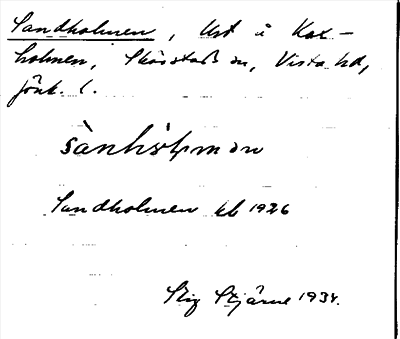 Sandholmen, Urd å Kax-
holmen, Skärstads sn, Vista hd,
Jönk. l.
sànhòḷmən
Sandholmen kb 1926
Stig Stjärne 1934.